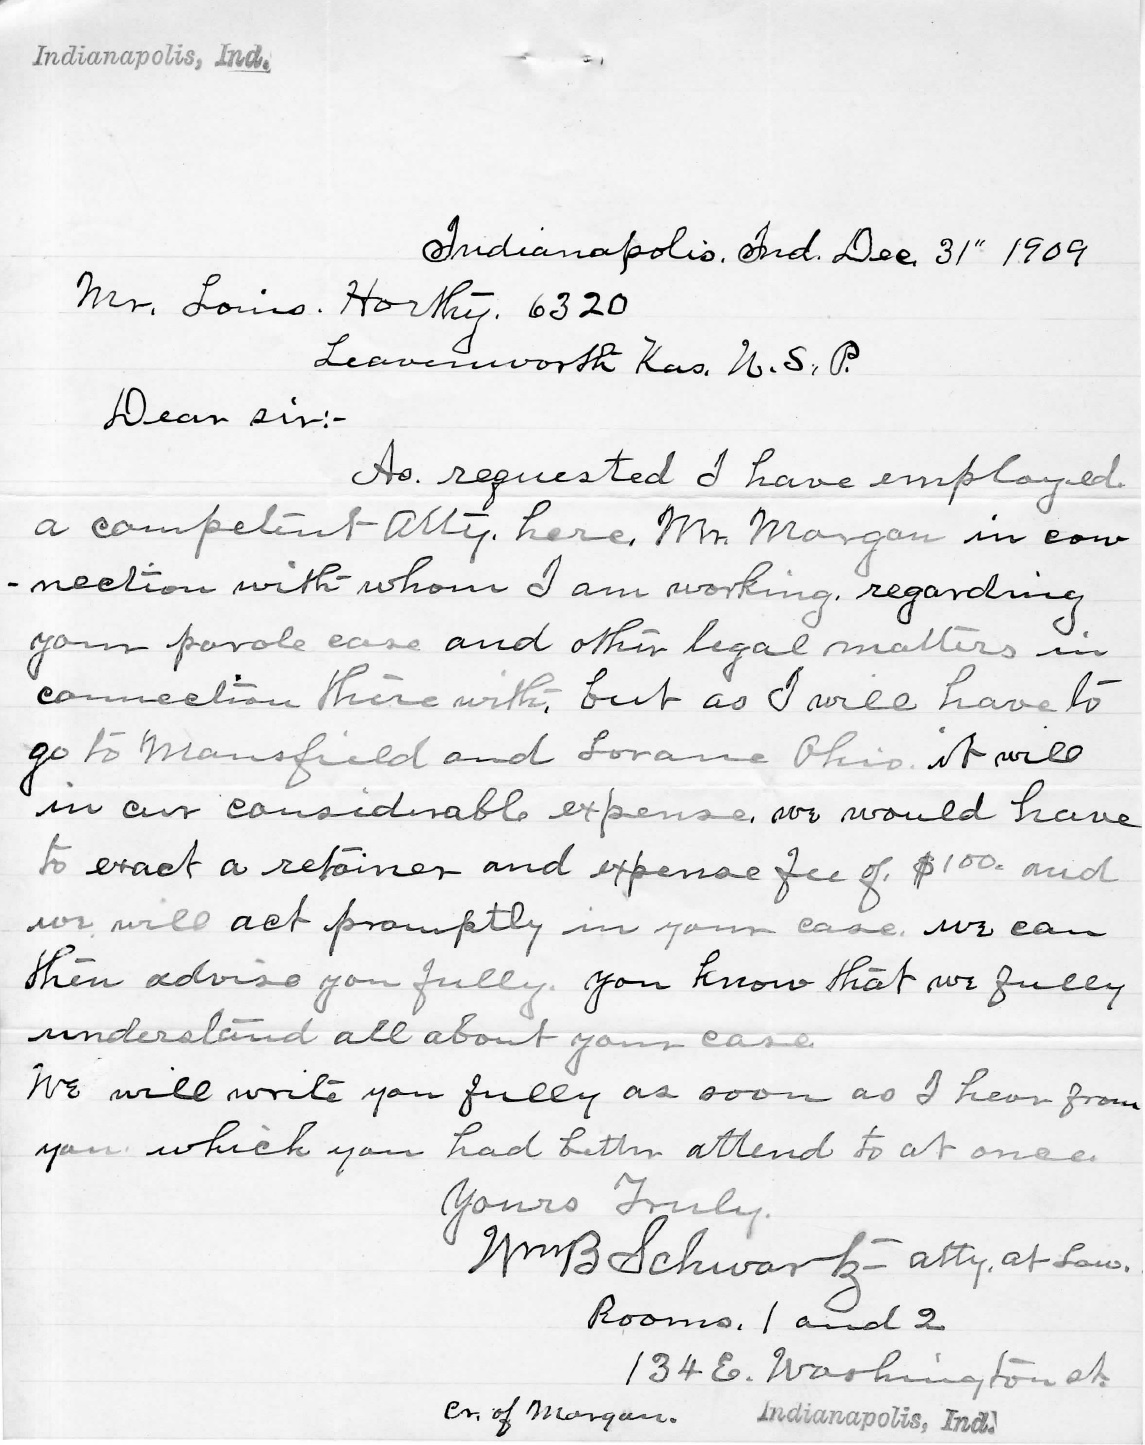 Indianapolis, Ind.
Indianapolis. Ind. Dec. 31" 1909
Mr. Louis. Horthy. 6320
Leavenworth Kas. U. S. P.
Dear sir:-
As. requested I have employed
a competent Atty. here. Mr. Morgan in con
-nection with whom I am working. regarding
your parole case and other legal matters in
connection there with, but as I will have to
go to Mansfield and Lorane Ohio. it will
in cur considerable expense. we would have
to exact a retainer and expense fee of. $100. and
we will act promptly in your case. we can
then advise you fully. you know that we fully
understand all about your case
We will write you fully as soon as I hear from
you which you had better attend to at once.
Yours Truly.
Wm B Schwartz - atty. at Law.
Rooms. 1 and 2
134 E. Washington st.
cr. of Morgan.
Indianapolis, Ind.